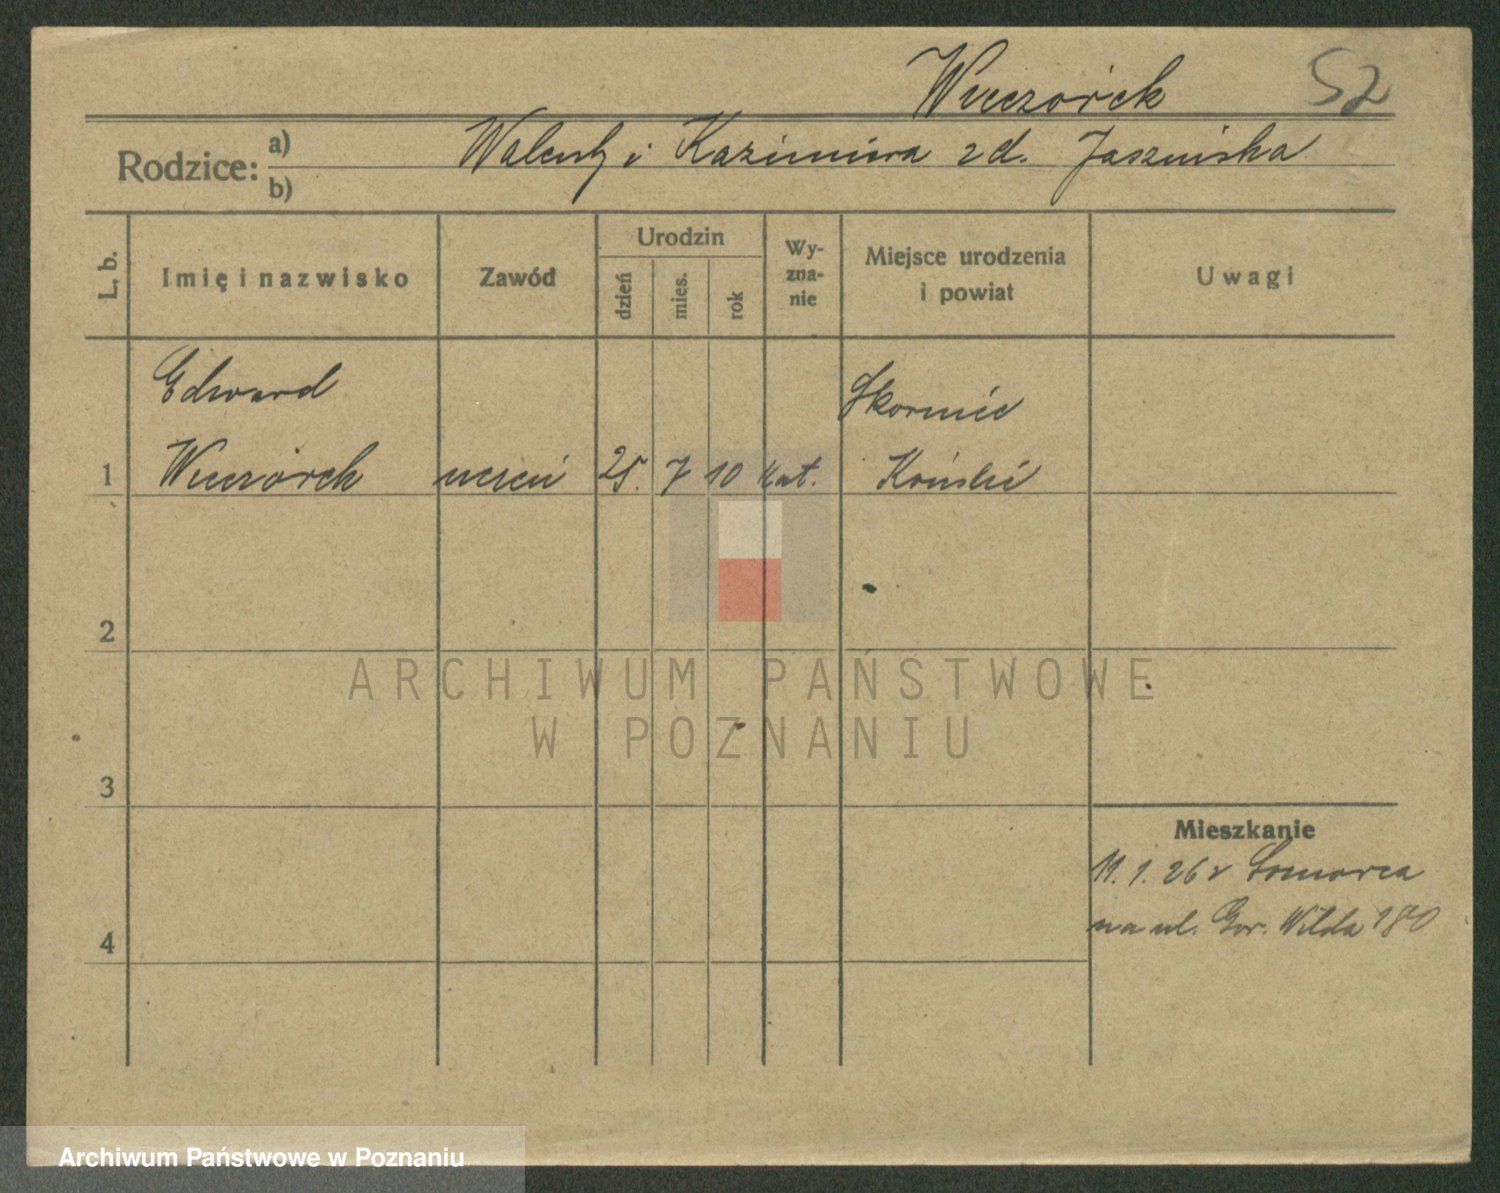 Wieczorek 52
Rodzice: a) Walenty i Kazimiera z d. Jaszuńska
b)
L. b. Imię i nazwisko Zawód Urodzin dzień mies. rok Wy-zna-nie Miejsce urodzenia i powiat Uwagi
Edward
1 Wieczorek uczeń 25. 7 10 kat. Końskie
2
3
4
Mieszkanie
11. 1. 26 r
na ul. Gór. Wilda 180
ARCHIWUM PAŃSTWOWE
W POZNANIU
Archiwum Państwowe w Poznaniu